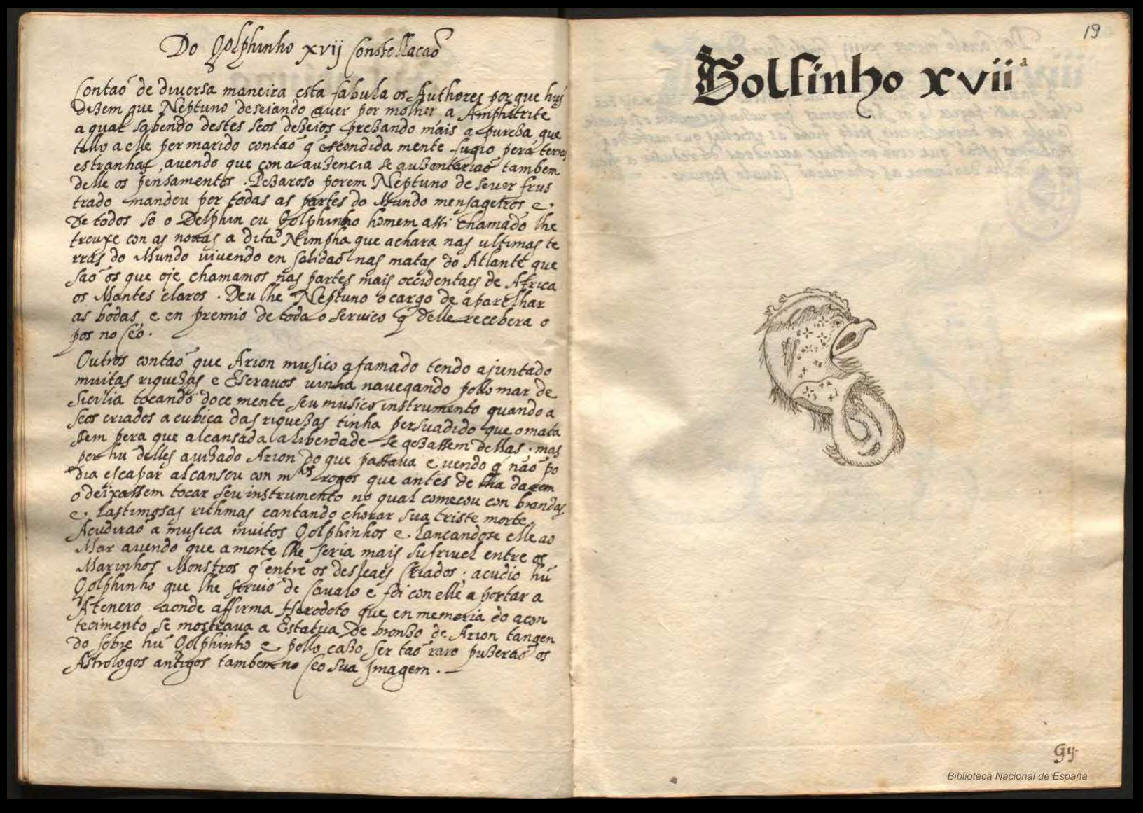 Do Golphinho xvij Constellacaõ
Contaõ de diversa maneira esta fabula os Authores porque hũs
dizem que Neptuno desejando aver por molher a Amphitrite
a qual sabendo destes seos dezejos prezando mais a pureza que
tello a elle por marido contaõ q̃ escondida mente fugio pera terras
estranhas, avendo que com a auzencia se auzentariaõ tambem
delle os pensamentos. Pezaroso porem Neptuno de se ver frus
trado mandou por todas as partes do Mundo mensageiros e
de todos so o Delphin ou Golphinho homem assi chamado lhe
trouxe con as novas a dita Nimpha que achara nas ultimas te
rras do Mundo vivendo en solidaõ nas matas do Atlante que
saõ os que oje chamamos nas partes mais occidentaes de Africa
os Montes claros. Deu lhe Neptuno o cargo de aparelhar
as bodas e en premio de todo o serviço q̃ delle recebera o
pos no ceo.
Outros contaõ que Arion musico afamado tendo ajuntado
muitas riquezas e Escravos vinha navegando pello mar de
Sicilia tocando doce mente seu musico instrumento quando a
seos criados a cubiça das riquezas tinha persuadido que o mata
ssem pera que alcansada a liberdade se gozassem dellas. mas
por hũ delles avizado Arion do que passava e vendo q̃ naõ po
dia escapar alcansou con mᵗᵒˢ rogos que antes de lha darem
o deixassem tocar seu instrumento no qual comecou con brandas
e lastimosas rithmas cantando chorar sua triste morte.
Acudiraõ a musica muitos Golphinhos e lancandose elle ao
Mar avendo que a morte lhe seria mais sufrivel entre os
Marinhos Monstros q̃ entre os desleaes Criados; acudio hũ
Golphinho que lhe servio de Cavalo e foi con elle a portar a
Atenero aonde affirma Harodoto que en memoria do acon
tecimento se mostrava a Estatua de bronzo de Arion tangen
do sobre hũ Golphinho e pello cazo ser taõ raro puzeraõ os
Astrologos antigos tambem no ceo sua Imagem.
19
Golfinho xviiª
Gij
Biblioteca Nacional de España